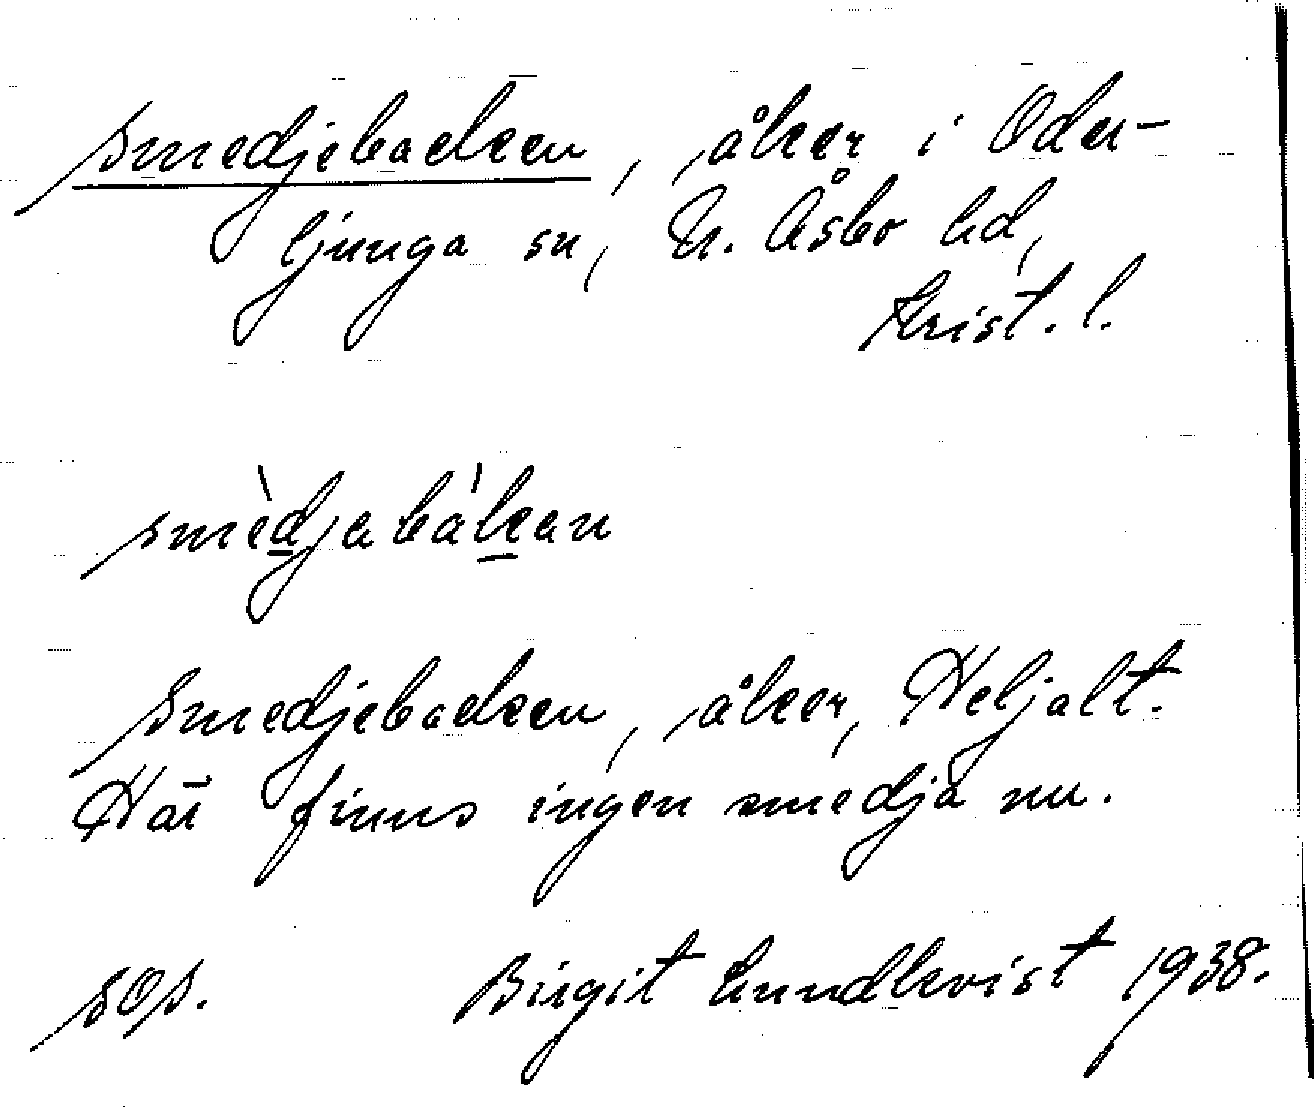 Smedjebacken, åker i Oder-
ljunga sn, N. Åsbo hd,
Krist. l.
smèdjabàkan
Smedjebacken, åker, Heljalt.
Här finns ingen smedja nu.
sOp. Birgit Lundkvist 1938.